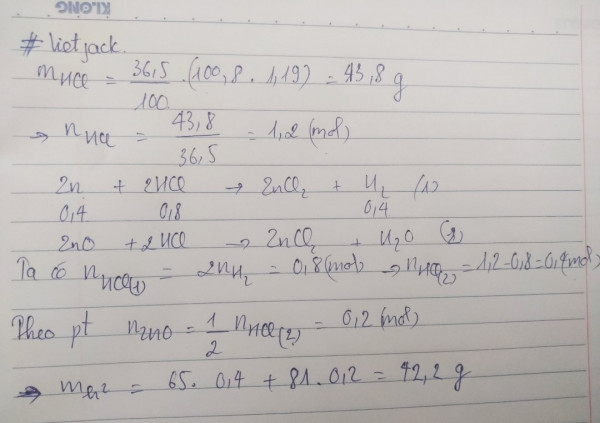 KLONG
# Vietjack.
mHCl = 36,5/100 . (100,8 . 1,19) = 43,8 g
→ nHCl = 43,8/36,5 = 1,2 (mol)
Zn + 2HCl → ZnCl₂ + H₂ (1)
0,4 0,8 0,4
ZnO + 2HCl → ZnCl₂ + H₂O (2)
Ta có nHCl(1) = 2nH₂ = 0,8 (mol) → nHCl(2) = 1,2-0,8=0,4 (mol)
Theo pt nZnO = 1/2 nHCl(2) = 0,2 (mol)
→ = 65. 0,4 + 81. 0,2 = 42,2 g